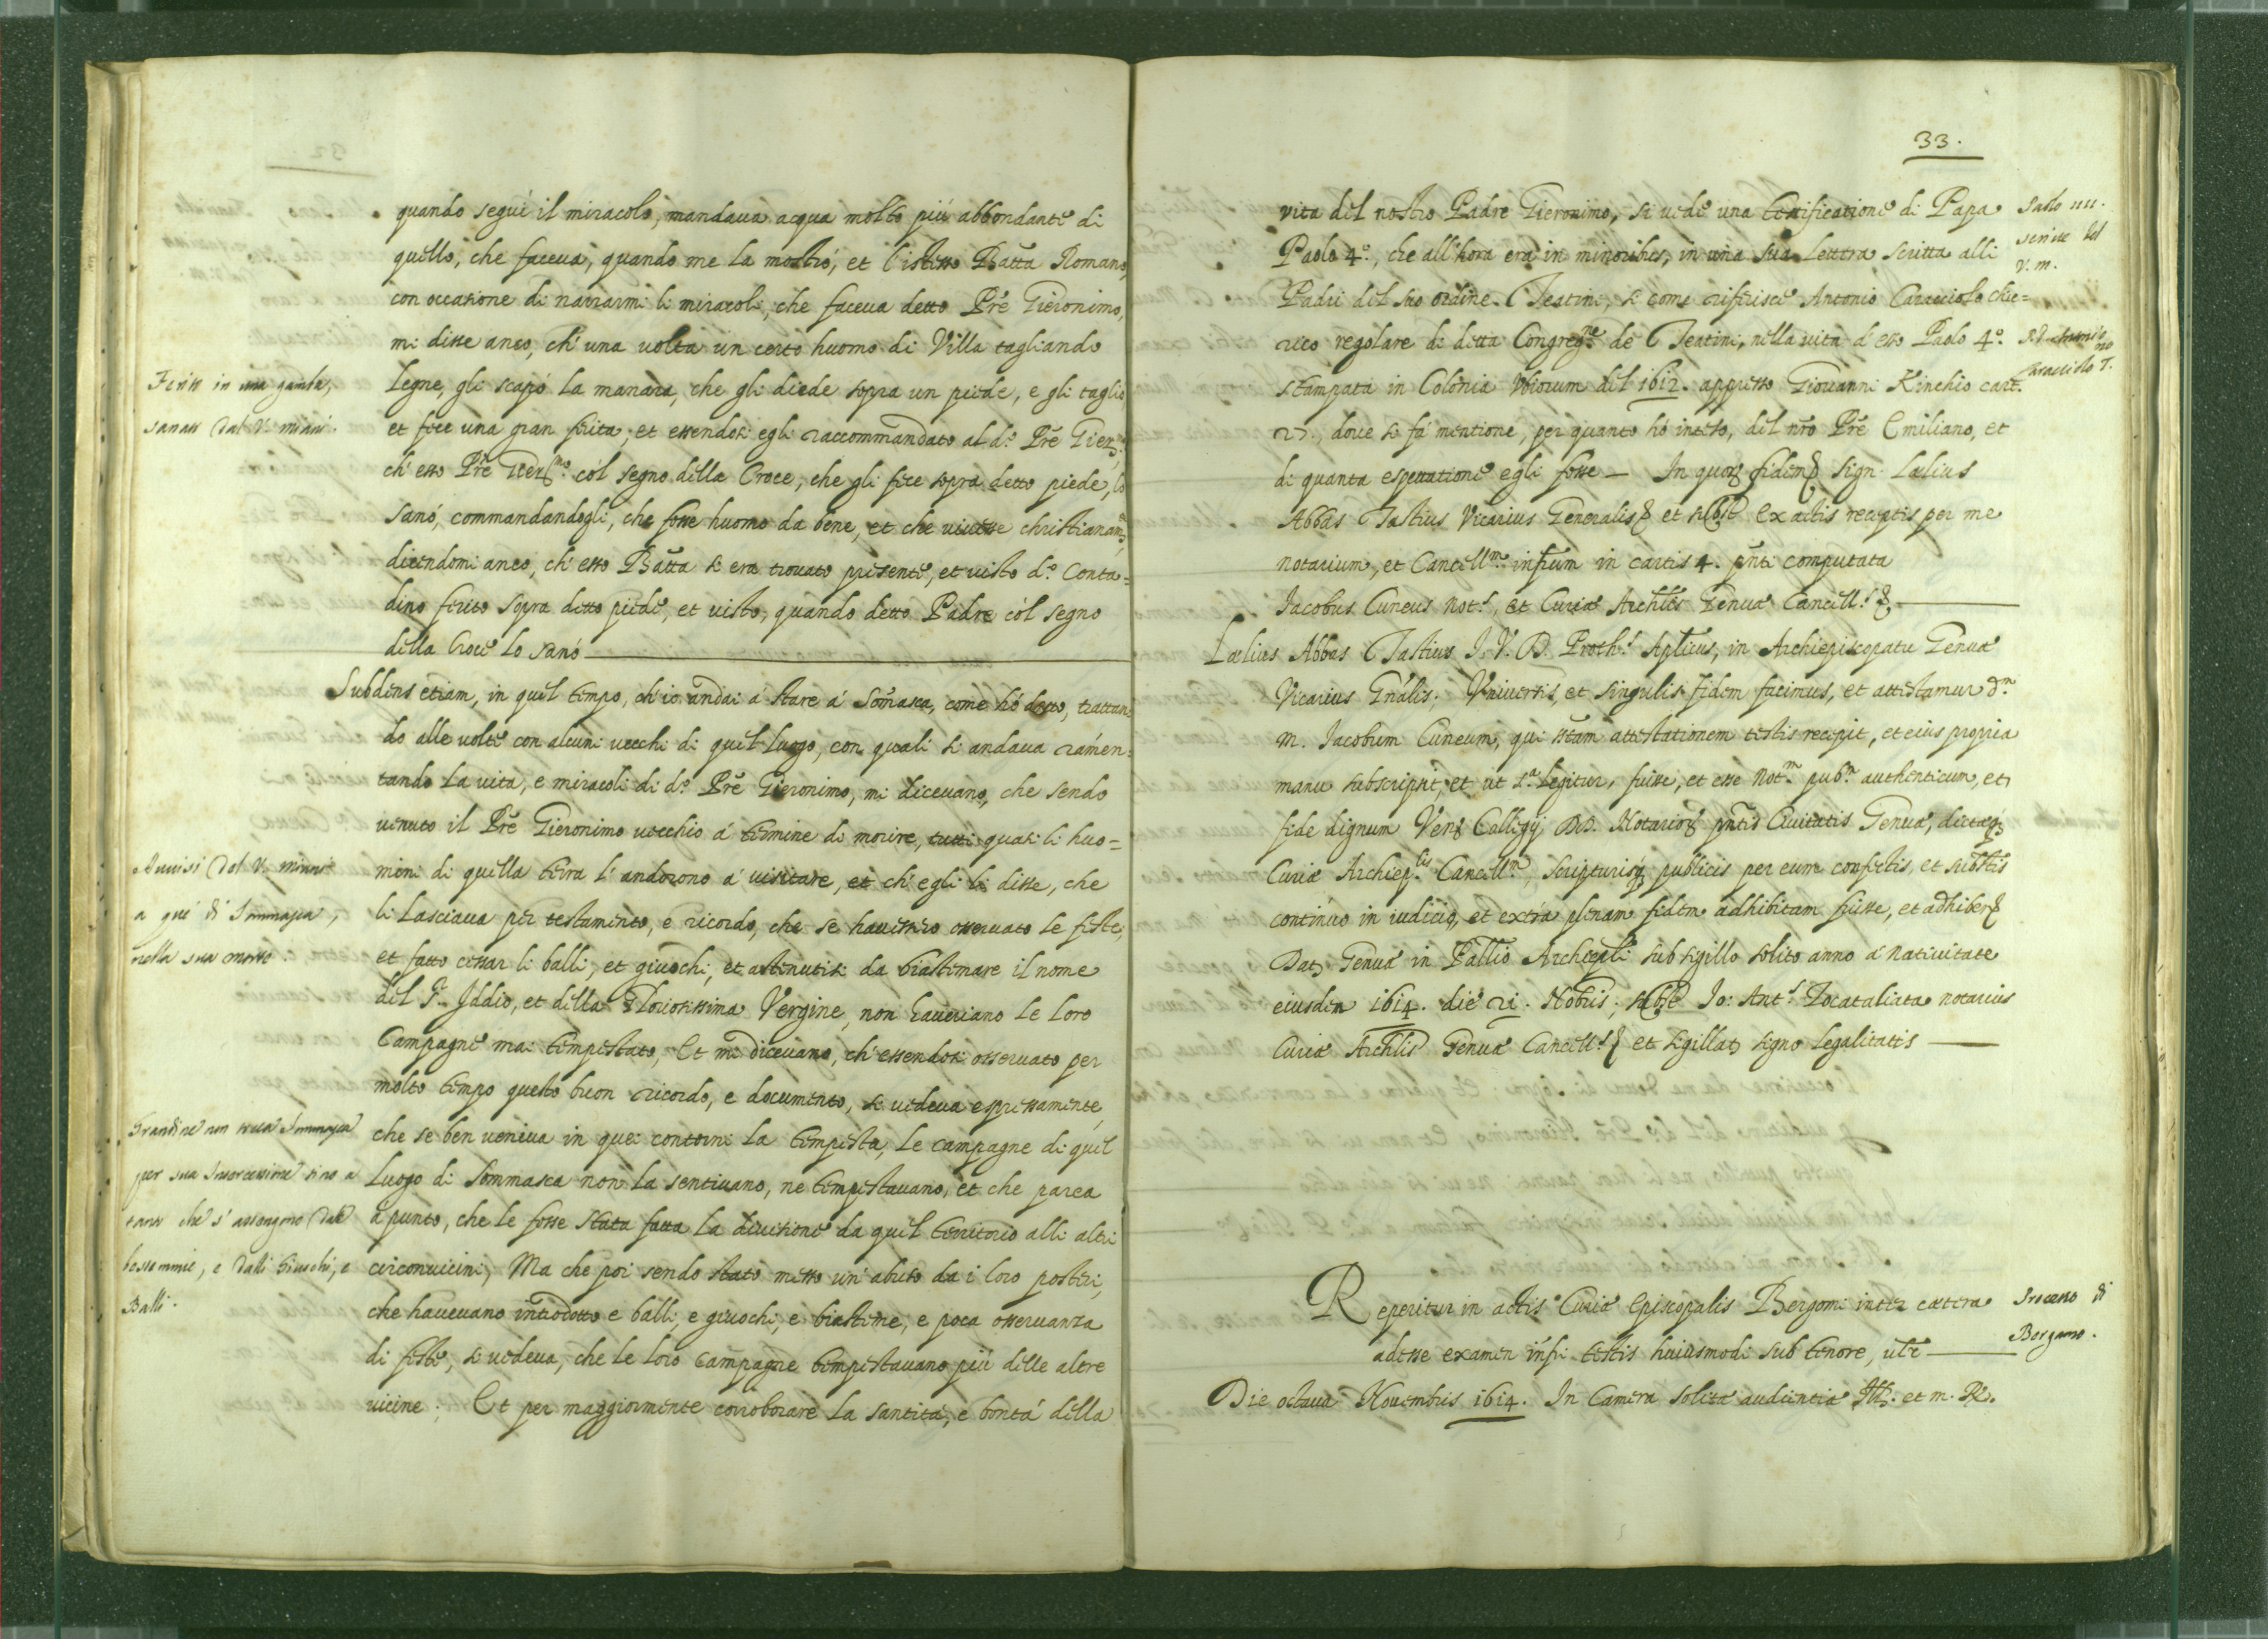 quando seguì il miracolo, mandaua acqua molto più abbondante di
quello, che faceua, quando me la mostrò, et l'istesso Batta Romano,
con occasione di narrarmi li miracoli, che faceua detto Prē Gieronimo,
mi disse anco, ch'una uolta un certo huomo di Villa tagliando
legne, gli scapò la manara, che gli diede sopra un piede, e gli tagliò,
et fece una gran ferita, et essendosi egli raccommandato al d.º Prē Gier.mo
ch'esso Prē Gier.mo còl segno della Croce, che gli fece sopra detto piede, lo
sanò, commandandogli, che fosse huomo da bene, et che uiuesse christianam.te
dicendomi anco, ch'esso Batta si era trouato presente, et uisto d.º Conta=
dino ferito sopra detto piede, et uisto, quando detto Padre còl segno
della Croce lo sanò
Subdens etiam, in quel tempo, ch'io andai à stare à Somasca, come hò detto, trattan=
do alle uolte con alcuni uecchi di quel luogo, con quali si andaua ramen=
tando la uita, e miracoli di d.º Prē Gieronimo, mi diceuano, che sendo
uenuto il Prē Gieronimo uecchio à termine di morire, tutti quasi li huo=
mini di quella terra l'andorono à uisitare, et ch'egli li disse, che
li lasciaua per testamento, e ricordo, che se hauessero osseruato le feste,
et fatto cessar li balli, et giuochi, et astenutisi da biastemare il nome
del S.r Iddio, et della Gloriosissima Vergine, non haueriano le loro
Campagne mai tempestato, Et mi diceuano, ch'essendosi osseruato per
molto tempo questo buon ricordo, e documento, si uedeua espressamente,
che se ben ueniua in quei contorni la tempesta, le campagne di quel
luogo di Sommasca non la sentiuano, ne tempestauano, et che parea
à punto, che le fosse stata fatta la diuisione da quel territorio alli altri
circonuicini, Ma che poi sendo stato messo un'abuso da i loro posteri,
che haueuano introdotto e balli, e giuochi, e biasteme, e poca osseruanza
di feste, si uedeua, che le loro Campagne tempestauano più delle altre
uicine; Et per maggiormente corroborare la santità, e bontà della
in una gamba,
sanato dal V.
Auuisi dal V.
nella sua morte.
Grandine non
per sua intercessione sino a
che s'astengono dalle
bestemmie, e dalli Giuochi, e
Balli.
33.
vita del nostro Padre Gieronimo, si uede una testificatione di Papa
Paolo 4.º, che all'hora era in minoribus, in una sua lettera scritta alli
Padri del suo ordine Teatini, si come riferisce Antonio Caracciolo chie=
rico regolare di detta Congreg.ne de Teatini, nella uita d'esso Paolo 4.º
stampata in Colonia Vbiorum del 1612. appresso Giouanni Kinchio cart.
27., doue si fà mentione, per quanto hò inteso, del nrō Prē Emiliano, et
di quanta espettatione egli fosse — In quor fidem sign. Lælius
Abbas Tastius Vicarius Generalis et subst Ex actis receptis per me
notarium, et Cancell.m infrum in cartis 4. pnti computata
Jacobus Cuneus Not.s, et Curiæ Archlis Genuæ Cancell.s
Lælius Abbas Tastius J. V. D. Proth.s Aplicus, in Archiepiscopatu Genuæ
Vicarius Gnālis; Vniuersis, et singulis fidem facimus, et attestamur d.m
m. Jacobum Cuneum, qui sctam attestationem testis recepit, et eius propria
manu subscripsit, et ut s.a legitur, fuisse, et esse Not.m pub.m authenticum, et
fide dignum Ven Collegij DD. Notarior pntis Ciuitatis Genuæ, dictæq
Curiæ Archiep.lis Cancell.m, scripturisq publicis per eum confectis, et subttis
continuo in iudicio, et extra plenam fidem adhibitam fuisse, et adhiberi
Dat Genuæ in Pallio Archiepli sub sigillo solito anno à natiuitate
eiusdem 1614. die 21. Nobris; subst Jo: Ant.s Tocataliata notarius
Curiæ Archlis Genuæ Cancell.s et sigillat signo legalitatis
Paolo IIII.
scriue del
V. m.
Caracciolo T.
Reperitur in actis Curiæ Episcopalis Bergomi inter cætera
adesse examen infri testis huiusmodi sub tenore, ut
Die octaua Nouembris 1614. In Camera solitæ audientiæ Ill. et m. R.
Processo di
Bergamo.